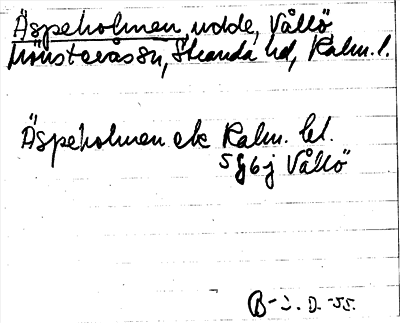 Äspeholmen, udde, Vållö
Mönsterås sn, Stranda hd, Kalm. l.
Äspeholmen ek Kalm. bl.
5 g 6 j Vållö
B-S. D. -55.